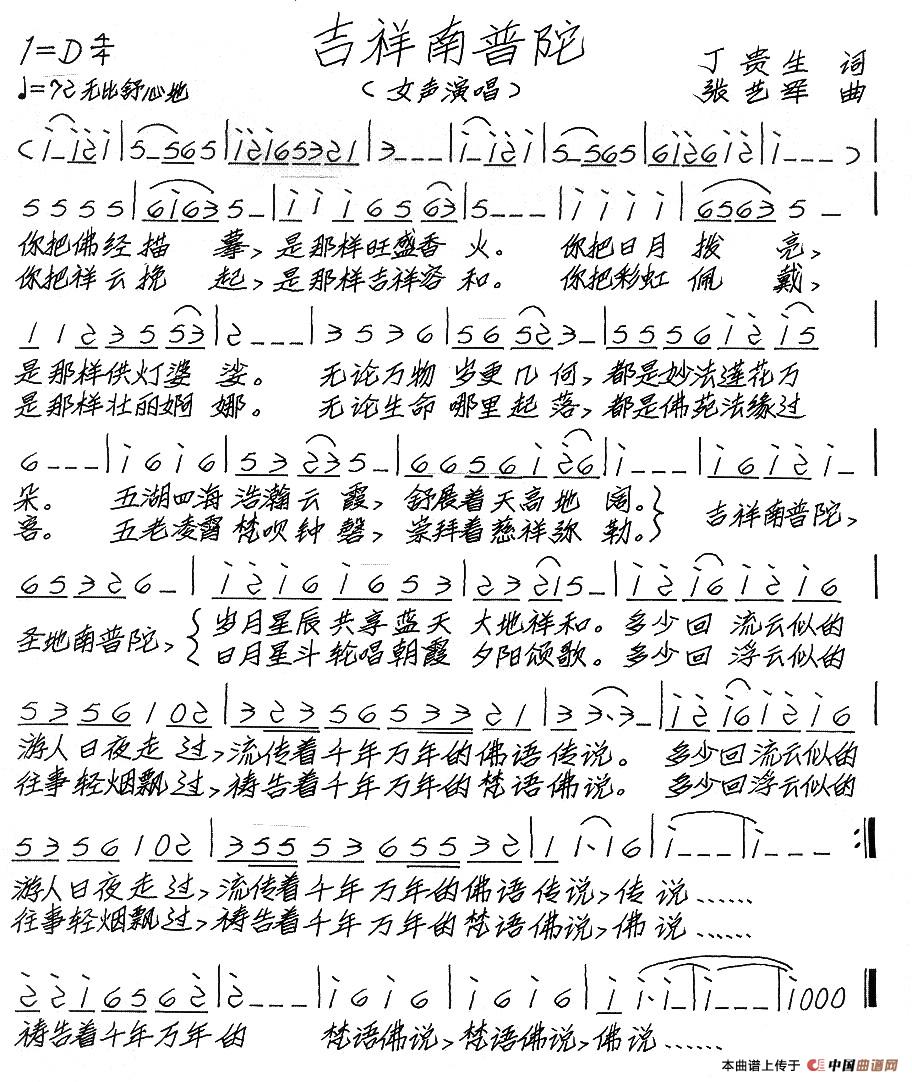 吉祥南普陀
1=D 4/4
♩=72 无比舒心地
(女声演唱)
丁贵生 词
张艺军 曲
(i_i2i|5_565|i2i65321|3___|i_i2i|5_565|6i26i2|i___)|
5555|6i635_|iii6563|5___|iiii|65635_|
你把佛经描 摹,是那样旺盛香 火。 你把日月 拨 亮,
你把祥云挽 起,是那样吉祥容 和。 你把彩虹 佩 戴,
1123553|2___|3536|56523_|5556i2i5|
是那样供灯婆 娑。 无论万物 岁更几 何,都是妙法莲花万
是那样壮丽婀 娜。 无论生命 哪里起 落,都是佛苑法缘过
6___|i6i6|53235_|6656i26|i___|i6i2i_|
朵。 五湖四海 浩瀚云 霞, 舒展着天高地 阔。} 吉祥南普陀,
客。 五老凌霄 梵呗钟 磬, 崇拜着慈祥弥 勒。}
65326_|i2i6i653|232i5_|i2i6i2i6|
圣地南普陀,{岁月星辰共享蓝天 大地祥和。多少回 流云似的
{日月星斗轮唱朝霞 夕阳颂歌。多少回 浮云似的
5356102|3235653321|33·3_|i2i6i2i6|
游人日夜走 过,流传着千年万年的佛语传说。 多少回流云似的
往事轻烟飘过,祷告着千年万年的梵语佛说。 多少回浮云似的
5356102|35553655532|1i·i6|i___|i___:|
游人日夜走 过,流传着千年万年的佛语传说,传说……
往事轻烟飘过,祷告着千年万年的梵语佛说,佛说……
22i6562|2___|i6i6|i6i6|ii·i|i___|i000|
祷告着千年万年的 梵语佛说,梵语佛说,佛说……
本曲谱上传于 中国曲谱网